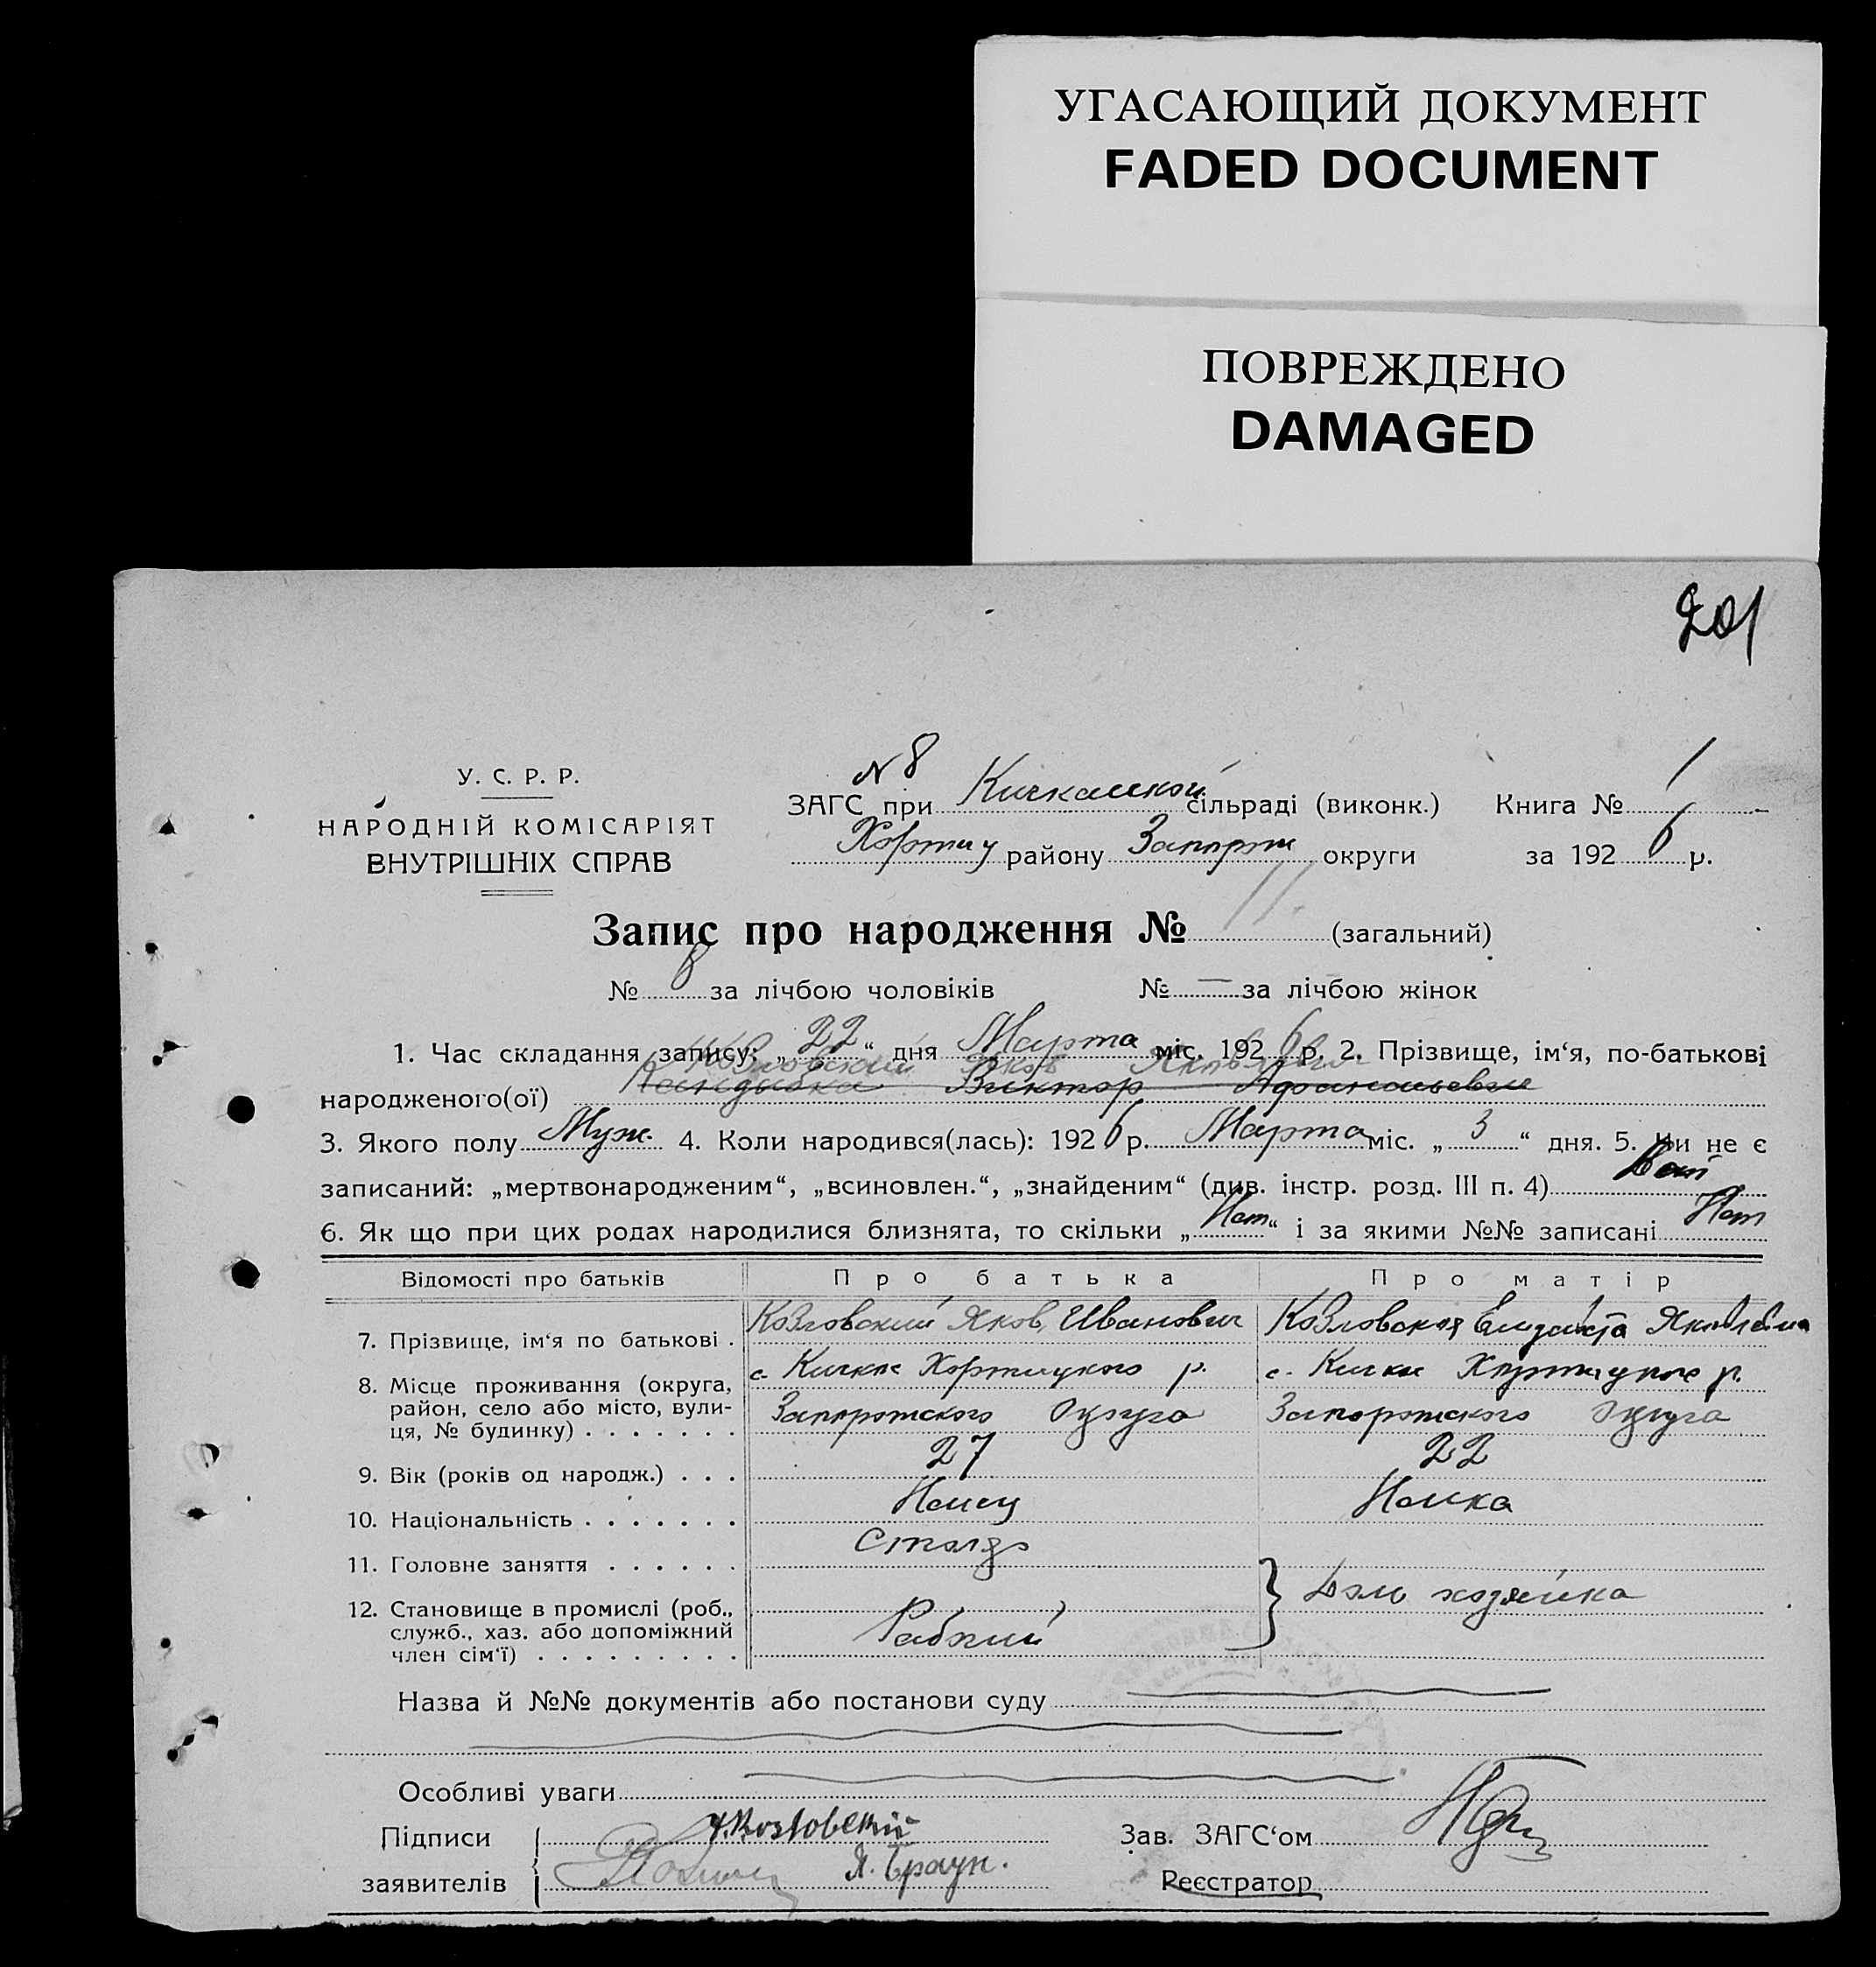 УГАСАЮЩИЙ ДОКУМЕНТ
FADED DOCUMENT
ПОВРЕЖДЕНО
DAMAGED
201
У. С. Р. Р.
НАРОДНІЙ КОМІСАРІЯТ
ВНУТРІШНІХ СПРАВ
N 8
ЗАГС при Кичкаской сільраді (виконк.) Книга № 1
Хортиц району Запорож округи за 1926 р.
Запис про народження № 11. (загальний)
№ 8 за лічбою чоловіків № — за лічбою жінок
1. Час складання запису: „22“ дня Марта міс. 1926 р. 2. Прізвище, ім‘я, по-батькові
Козловский Яков Яковлевич
народженого(ої) Виктор Афанасьевич
3. Якого полу Муж. 4. Коли народився(лась): 1926 р. Марта міс. „3“ дня. 5. Чи не є
записаний: „мертвонародженим“, „всиновлен.“, „знайденим“ (див. інстр. розд. III п. 4)
6. Як що при цих родах народилися близнята, то скільки „Нет“ і за якими №№ записані Нет
Відомості про батьків Про батька Про матір
7. Прізвище, ім‘я по батькові . Козловский Яков Иванович Козловская Елизавета Яковлевна
8. Місце проживання (округа, район, село або місто, вулиця, № будинку) . . . . . . . с. Кичкас Хортицкого р. с. Кичкас Хортицкого р.
Запорожского Округа Запорожского Округа
9. Вік (років од народж.) . . . 27 22
10. Національність . . . . . . . Немец Немка
11. Головне заняття . . . . . . Столяр
12. Становище в промислі (роб., служб., хаз. або допоміжний член сім‘ї) . . . . . . . . . Рабочий } Дом хозяйка
Назва й №№ документів або постанови суду
Особливі уваги
Підписи Я. Kozlовский Зав. ЗАГС‘ом
заявителів Я. Браун. Реєстратор